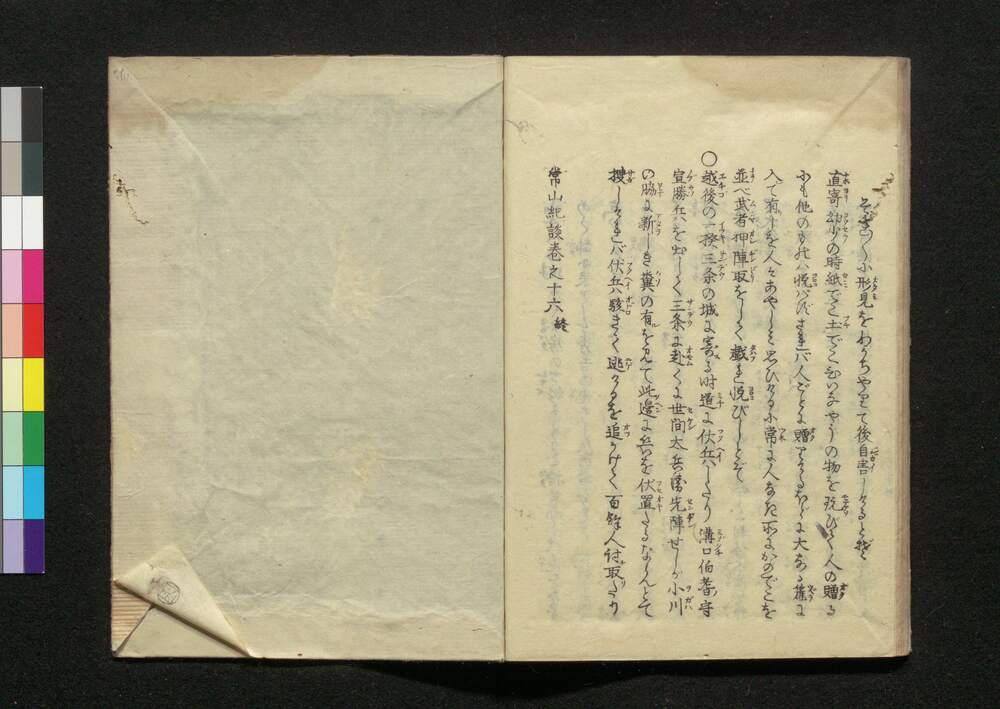 そおつ〳〵小形見をわかちやりて後自害しけると云
直寄幼少の時紙でこ土でこといふやうの物を玩びて人の贈る
小も他のものハ悦ばずされバ人ごとに贈りけるほどに大なる籠に
入て有しを人々あやしと思ひける小常に人なき所にかのでこを
並べ武者押陣取をして戯れ悦びしとぞ
○越後の一揆三条の城に寄る時道に伏兵ハしたり溝口伯耆守
宣勝兵を出して三条に赴くに世間太兵衛先陣せしが小川
の脇に新しき糞の有を見て此邊に兵を伏置たるならんとて
捜しけれバ伏兵駭きて逃るを追かけて百餘人討取たり
常山紀談巻之十六終